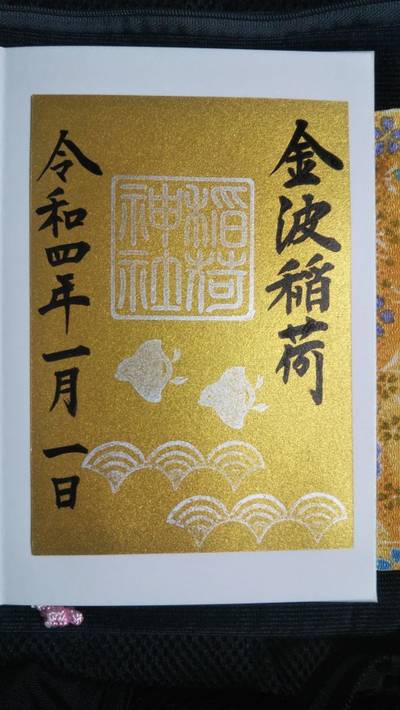 金波稲荷
稲荷
神社
令和四年一月一日